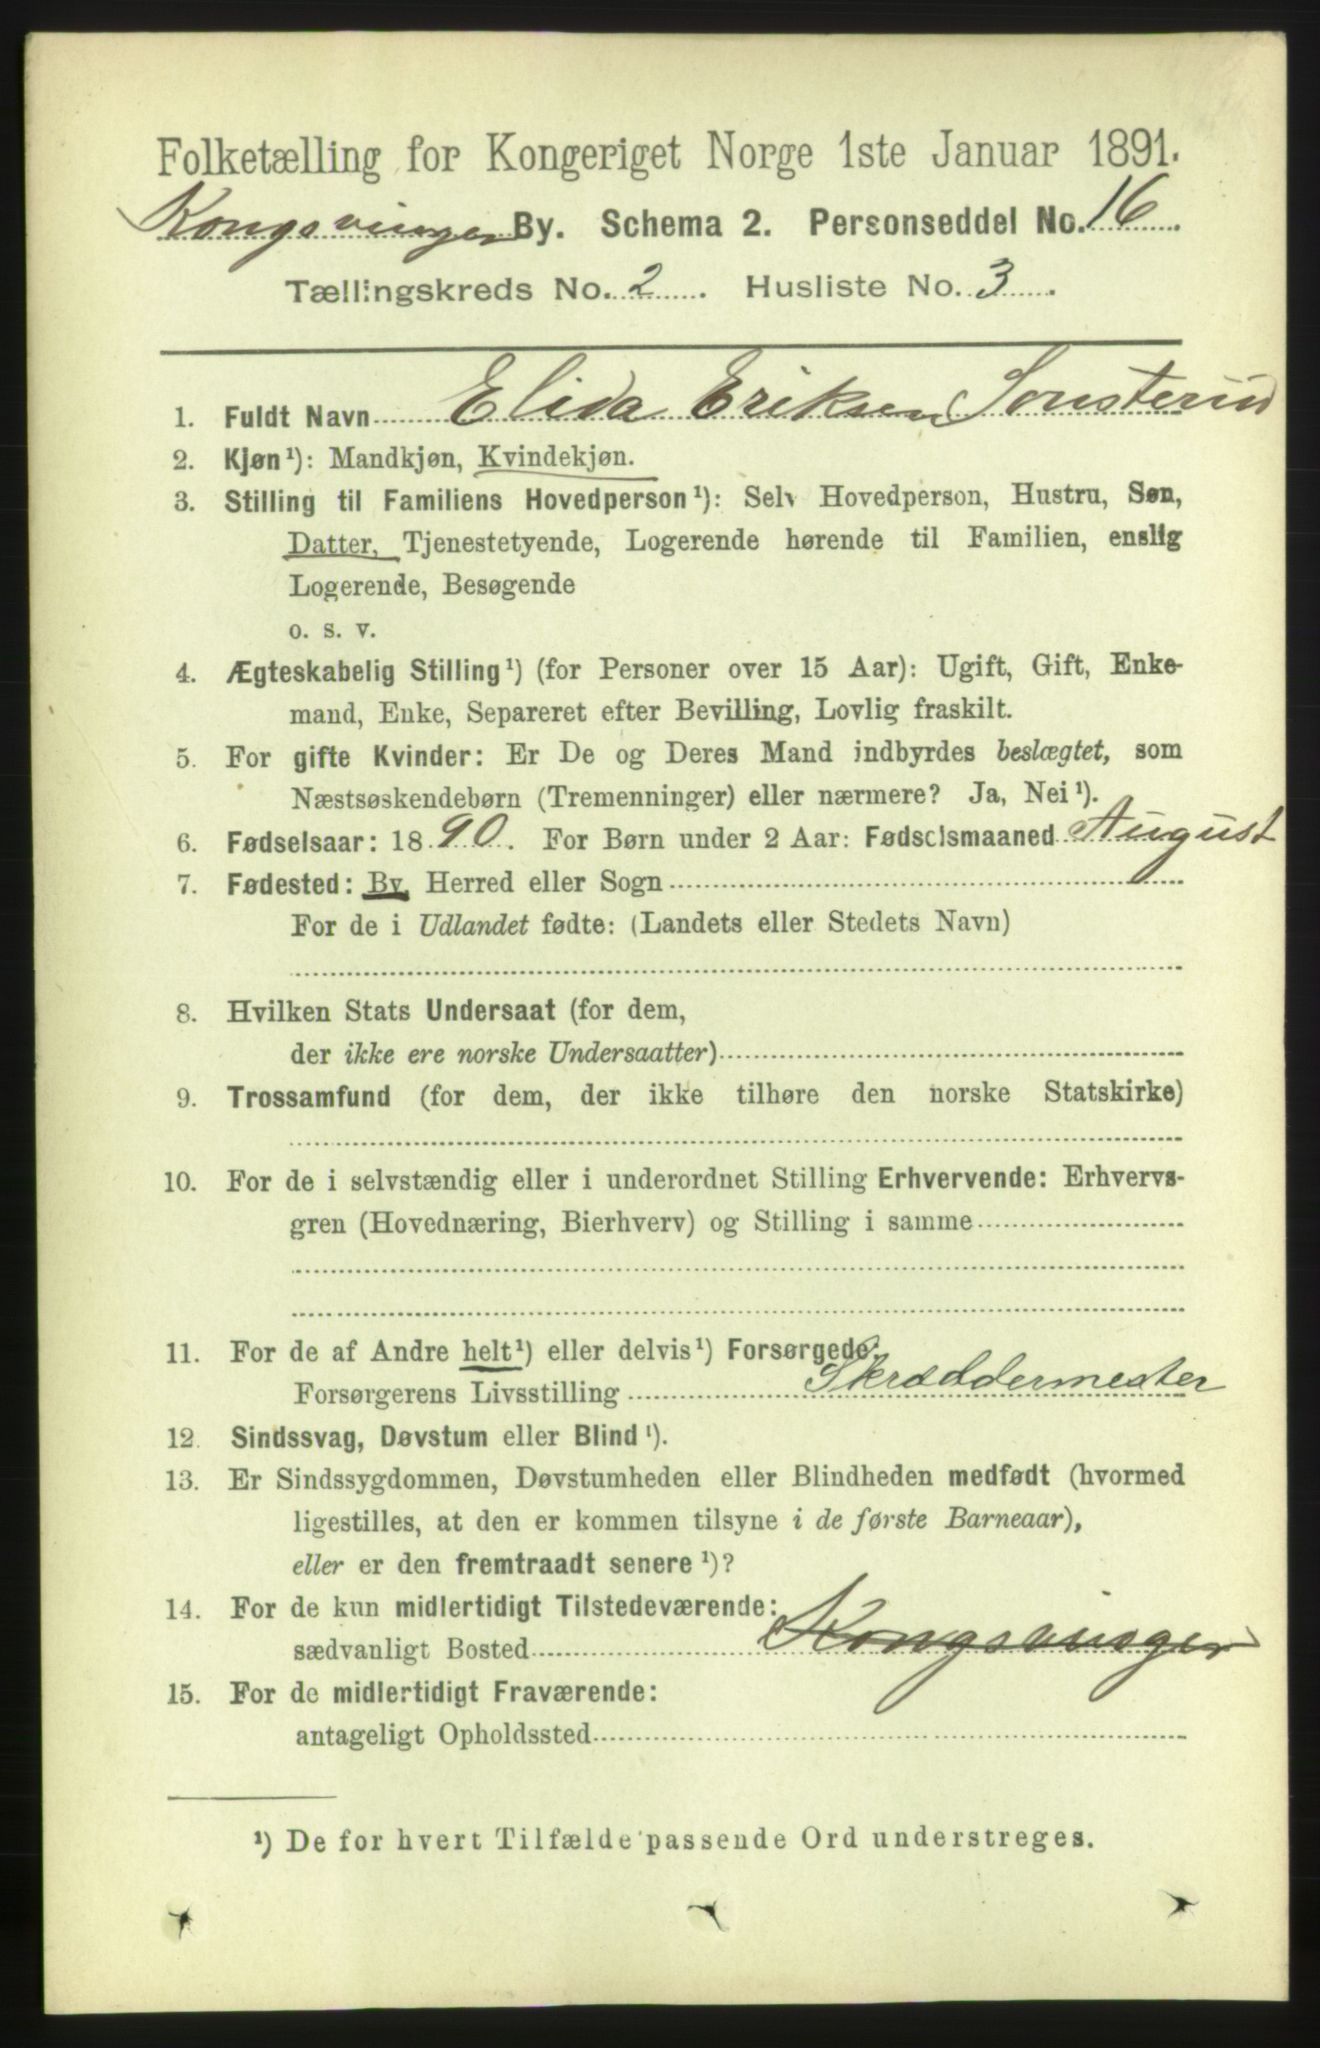 Folketælling for Kongeriget Norge 1ste Januar 1891.
Kongsvinger By. Schema 2. Personseddel No. 16
Tællingskreds No. 2. Husliste No. 3.
1. Fuldt Navn Elida Eriksen Sonsterud
2. Kjøn¹): Mandkjøn, Kvindekjøn.
3. Stilling til Familiens Hovedperson¹): Selv Hovedperson, Hustru, Søn,
Datter, Tjenestetyende, Logerende hørende til Familien, enslig
Logerende, Besøgende
o. s. v.
4. Ægteskabelig Stilling¹) (for Personer over 15 Aar): Ugift, Gift, Enke-
mand, Enke, Separeret efter Bevilling, Lovlig fraskilt.
5. For gifte Kvinder: Er De og Deres Mand indbyrdes beslægtet, som
Næstsøskendebørn (Tremenninger) eller nærmere? Ja, Nei¹).
6. Fødselsaar: 1890. For Børn under 2 Aar: Fødselsmaaned August
7. Fødested: By, Herred eller Sogn
For de i Udlandet fødte: (Landets eller Stedets Navn)
8. Hvilken Stats Undersaat (for dem,
der ikke ere norske Undersaatter)
9. Trossamfund (for dem, der ikke tilhøre den norske Statskirke)
10. For de i selvstændig eller i underordnet Stilling Erhvervende: Erhvervs-
gren (Hovednæring, Bierhverv) og Stilling i samme
11. For de af Andre helt¹) eller delvis¹) Forsørgede:
Forsørgerens Livsstilling Skræddermester
12. Sindssvag, Døvstum eller Blind¹).
13. Er Sindssygdommen, Døvstumheden eller Blindheden medfødt (hvormed
ligestilles, at den er kommen tilsyne i de første Barneaar),
eller er den fremtraadt senere¹)?
14. For de kun midlertidigt Tilstedeværende:
sædvanligt Bosted Kongsvinger
15. For de midlertidigt Fraværende:
antageligt Opholdssted
¹) De for hvert Tilfælde passende Ord understreges.